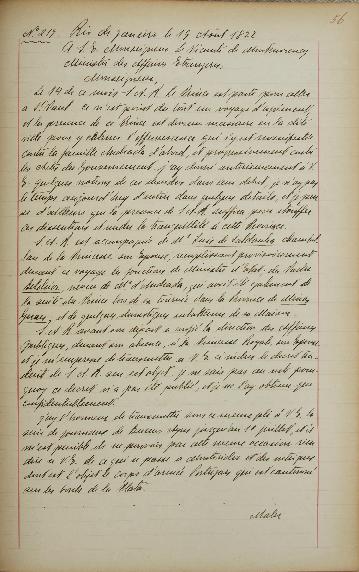 56
Nº 217. Rio de Janeiro le 19 Août 1822
A S. E. Monseigneur le Vicomte de Montmorency
Ministre des Affaires Etrangères.
Monseigneur,
Le 14 de ce mois S. A. R. le Prince est partie pour aller
à St Paul. ce n'est point du tout un voyage d'agrément,
et la présence de ce Prince est devenue nécessaire en la dite
ville pour y calmer l'effervescence qui s'y est manifestée
contre la famille Andrada d'abord, et progressivement contre
les chefs du Gouvernement. j'ay donné antérieurement à V.
E. quelques notions de ces troubles dans leur début, je n'ay pas
le temps aujourd'huy d'entrer dans quelques détails, et je pense
d'ailleurs que la présence de S. A. R. suffira pour étouffer
ces dissentions et rendre la tranquillité à cette Province.
S. A. R. est accompagnée de Mr Luis de Saldanha chambel-
lan de la Princesse son épouse, remplissant provisoirement
durant ce voyage les fonctions de Ministre d'état, du Padre
Belchior, neveu de Mr d'Andrada, qui avait été également de
la suite du Prince lors de sa tournée dans la Province de Minas
Geraes, et de quelques domestiques subalternes de sa Maison.
S. A. R. avant son départ a confié la direction des affaires
publiques, durant son absence, à la Princesse Royale son épouse,
et j'ai l'honneur de transmettre à V. E. ci inclus le décret
de S. A. R. sur cet objet. je ne sais pas au reste pour-
quoy ce décret n'a pas été publié, et je n'ay obtenu que
confidentiellement.
j'ay l'honneur de transmettre sous ce même pli à V. E. la
suite de journaux de Buenos Ayres jusqu'au 1er juillet, et il
m'est pénible de ne pouvoir par cette même occasion rien
dire à V. E. de ce qui se passe à Montevideo et des
dont est l'objet le corps d'armée Portugais qui est cantonné
sur les bords de la Plata.
Maler